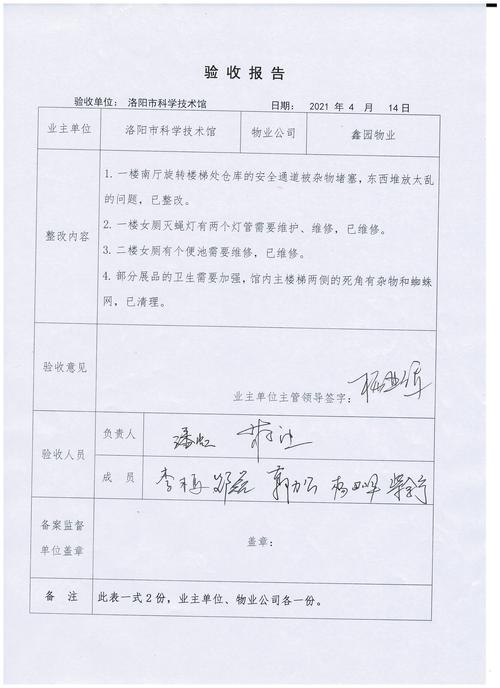 验收报告
验收单位： 洛阳市科学技术馆 日期： 2021 年 4 月 14日
业主单位 洛阳市科学技术馆 物业公司 鑫园物业
整改内容
1. 一楼南厅旋转楼梯处仓库的安全通道被杂物堵塞，东西堆放太乱
的问题，已整改。
2. 一楼女厕灭蝇灯有两个灯管需要维护、维修，已维修。
3. 二楼女厕有个便池需要维修，已维修。
4. 部分展品的卫生需要加强，馆内主楼梯两侧的死角有杂物和蜘蛛
网，已清理。
验收意见
业主单位主管领导签字：
验收人员
负责人 潘虹
成 员
备案监督
单位盖章
盖章：
备 注 此表一式2份，业主单位、物业公司各一份。